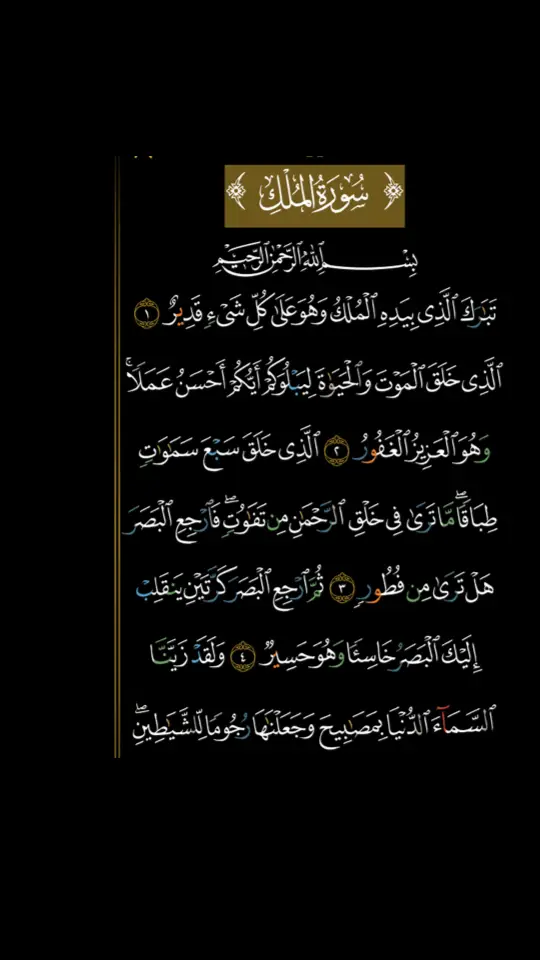 سُورَةُ المُلْكِ
بِسْمِ ٱللَّهِ ٱلرَّحْمَٰنِ ٱلرَّحِيمِ
تَبَٰرَكَ ٱلَّذِى بِيَدِهِ ٱلْمُلْكُ وَهُوَ عَلَىٰ كُلِّ شَىْءٍ قَدِيرٌ ١
ٱلَّذِى خَلَقَ ٱلْمَوْتَ وَٱلْحَيَوٰةَ لِيَبْلُوَكُمْ أَيُّكُمْ أَحْسَنُ عَمَلًا ۚ
وَهُوَ ٱلْعَزِيزُ ٱلْغَفُورُ ٢ ٱلَّذِى خَلَقَ سَبْعَ سَمَٰوَٰتٍ
طِبَاقًا ۖ مَّا تَرَىٰ فِى خَلْقِ ٱلرَّحْمَٰنِ مِن تَفَٰوُتٍ ۖ فَٱرْجِعِ ٱلْبَصَرَ
هَلْ تَرَىٰ مِن فُطُورٍ ٣ ثُمَّ ٱرْجِعِ ٱلْبَصَرَ كَرَّتَيْنِ يَنقَلِبْ
إِلَيْكَ ٱلْبَصَرُ خَاسِئًا وَهُوَ حَسِيرٌ ٤ وَلَقَدْ زَيَّنَّا
ٱلسَّمَآءَ ٱلدُّنْيَا بِمَصَٰبِيحَ وَجَعَلْنَٰهَا رُجُومًا لِّلشَّيَٰطِينِ ۖ